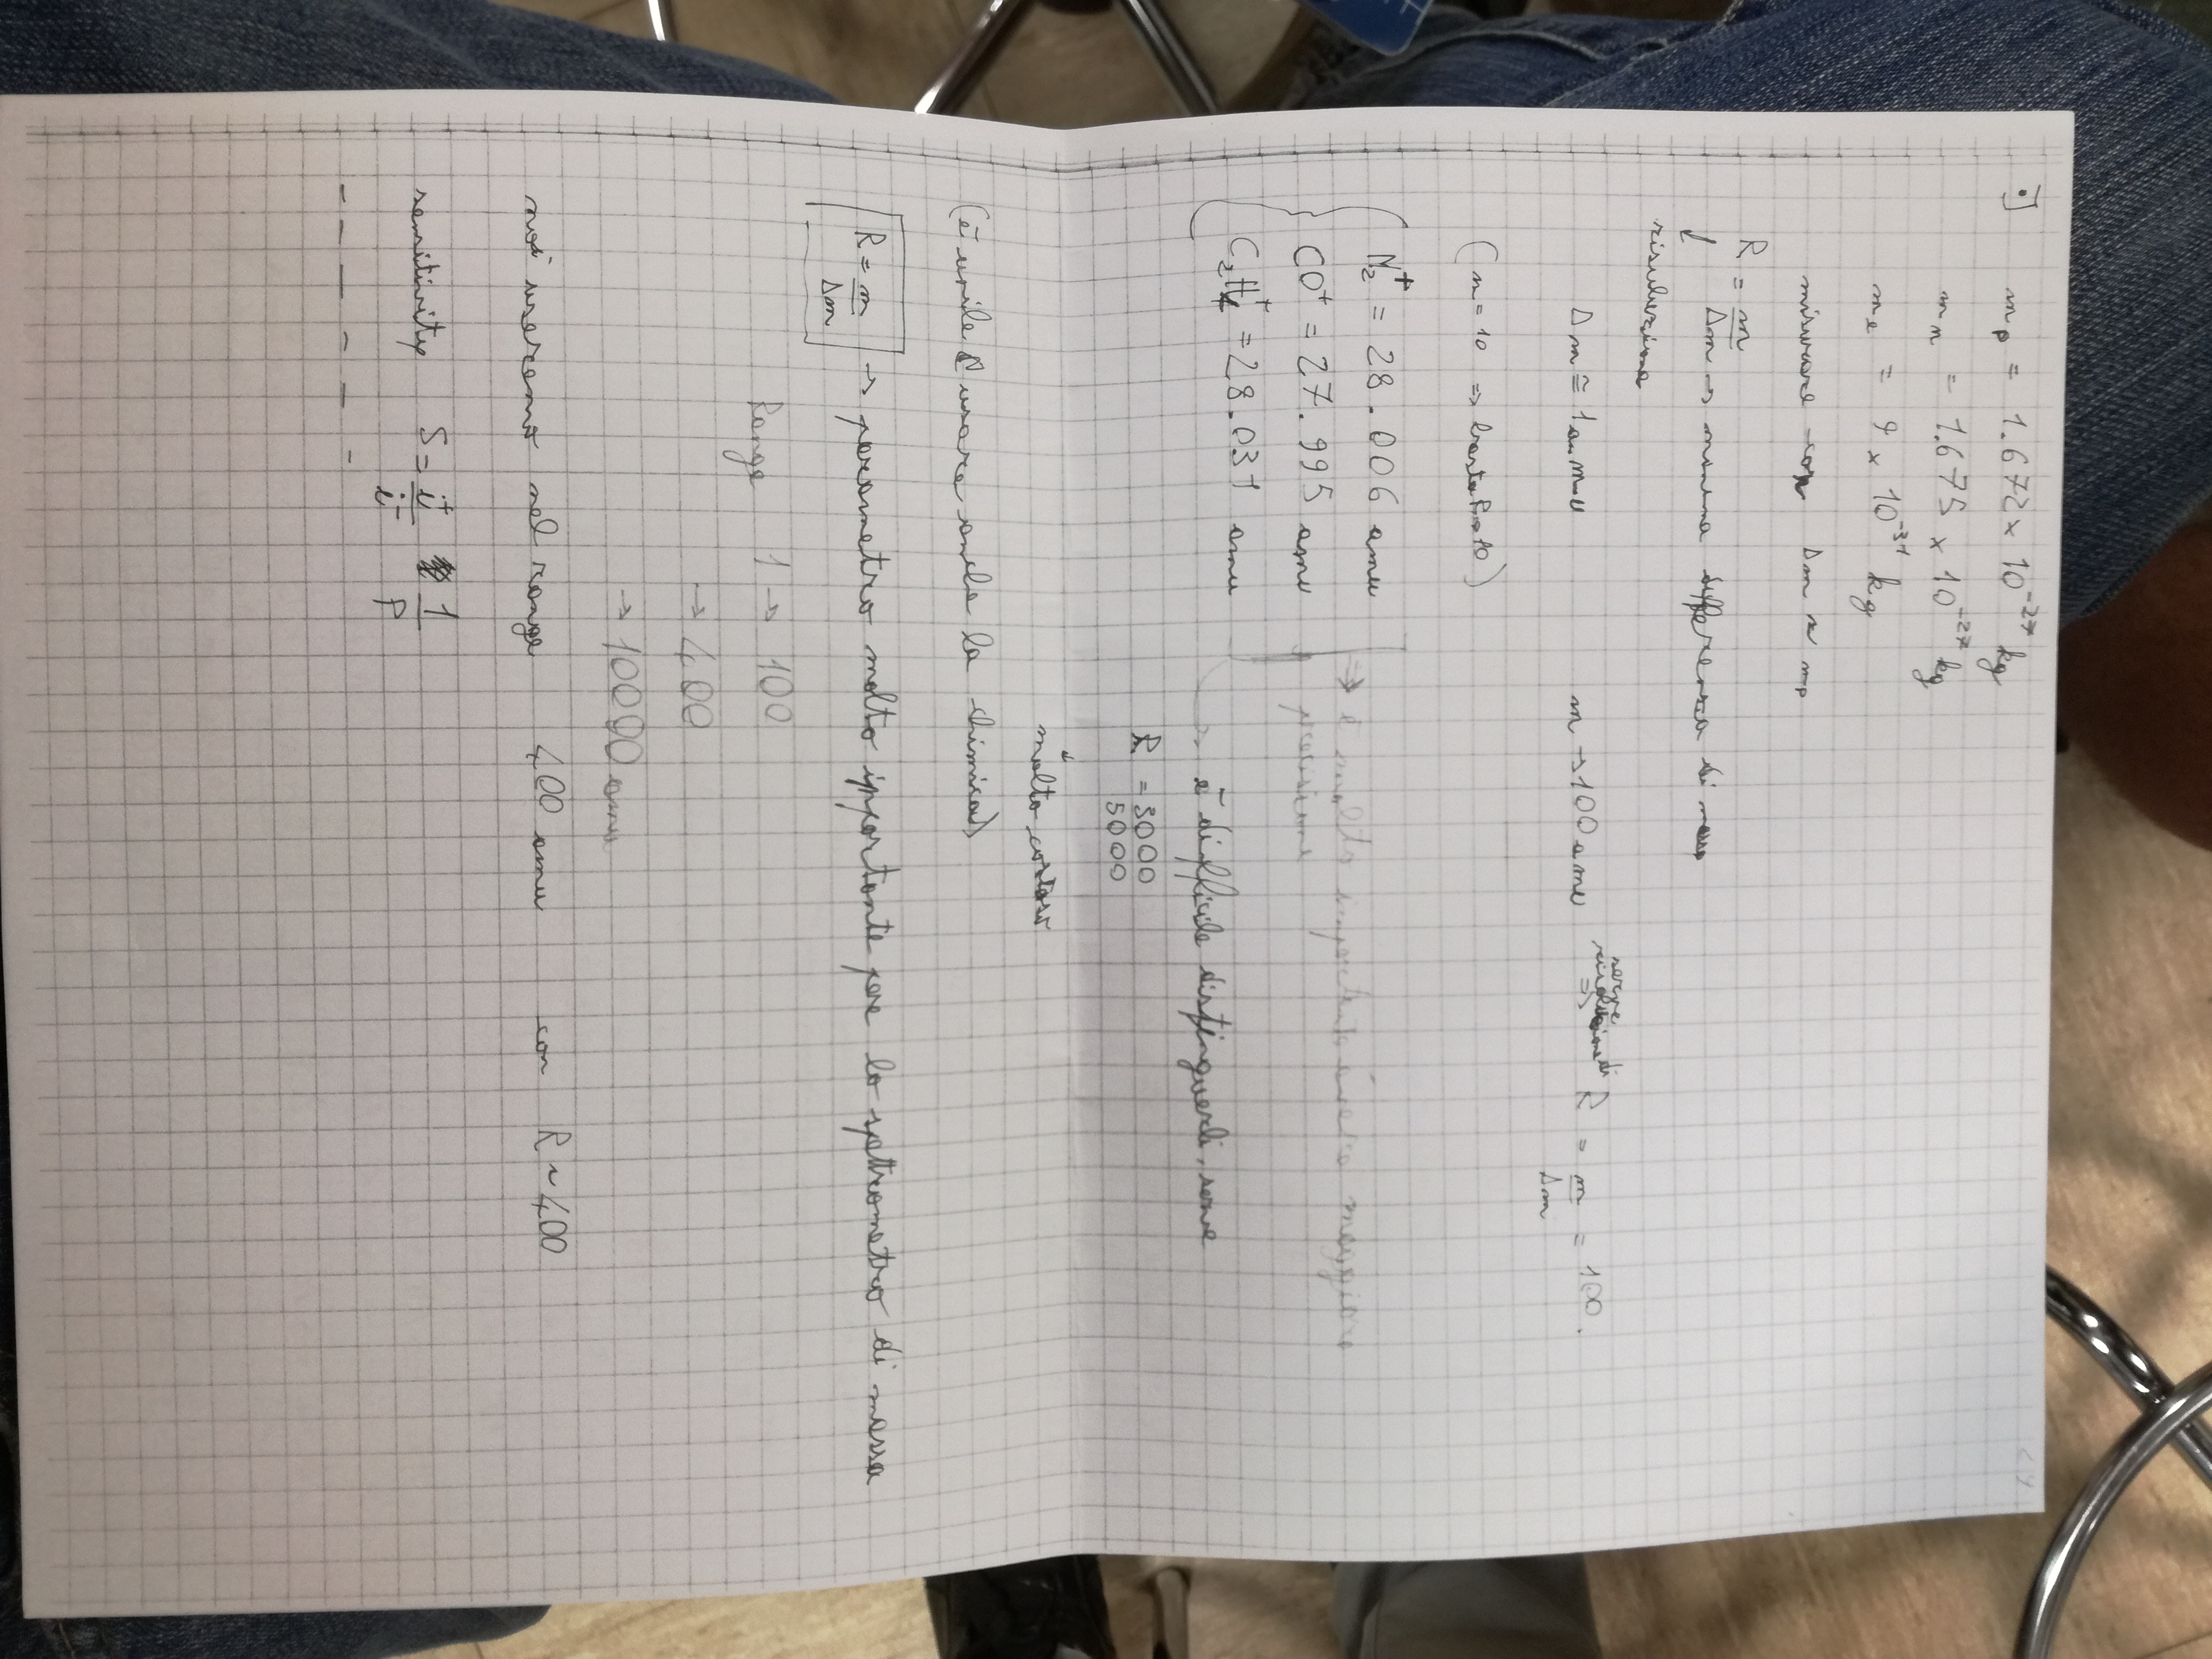 •]
m_p = 1.672 x 10^-27 kg
m_n = 1.675 x 10^-27 kg
m_e = 9 x 10^-31 kg
misurare con Δm ≈ m_p
R = m/Δm → minima differenza di massa
↓
risoluzione
Δm ≅ 1 a.m.u m → 100 amu serve risoluzione di ⇒ R = m/Δm = 100.
(m = 10 ⇒ basta R=10)
N₂⁺ = 28.006 amu ⇒ è molto importante avere maggiore
CO⁺ = 27.995 amu precisione
C₂H₄⁺ = 28.031 amu → è difficile distinguerli, serve
R = 3000
5000
↓
molto costoso
(è utile usare anche la chimica)
R = m/Δm → parametro molto importante per lo spettrometro di massa
Range 1 → 100
→ 400
→ 10000 amu
noi useremo nel range 400 amu con R ~ 400
sensitivity S = i⁺/i⁻ 1/P
- - - - - -